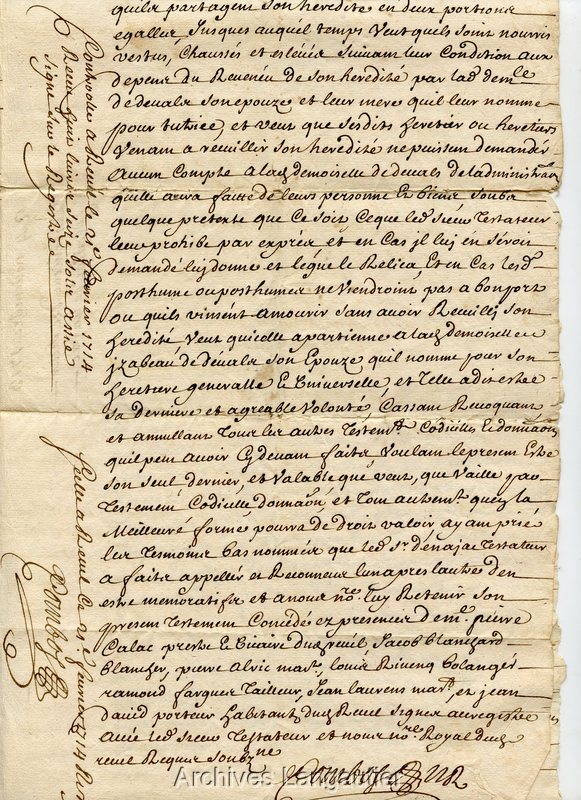 quils partagent son heredité en deux portions
egalles Jusques auquel temps Veut quels soint nourris
vestus, chaussés et eslevés suivant leur Condition aux
depens du Reuenu de son heredité par lad demlle
de devals son epouze et leur mere quil leur nomme
pour tutrice, et veut que sesdits heretiers ou heretieres
Venant a recuillir son heredité ne puissent demander
aucun Compte a lad demoiselle de devals de ladministraon
quelle aura faite de leurs personnes et biens soubz
quelque pretexte que Ce soit Ce que led sieur Testateur
leur prohibe par exprés et en Cas jl luj en seroit
demandé luj donne et legue le Relica, Et en Cas lesd
posthume ou posthumes ne Viendroint pas a bon port
ou quils vinsent a mourir sans avoir Recuilly son
heredité Veut quelle apartienne a lad demoiselle
jzabeau de devals son Epouze quil nomme pour son
heretiere generalle et Universelle, et Telle a dit estre
sa derniere et agreable Volonté, Cassant Revoquant
et annullant Tous les autres Testemts Codicilles et donnaons
quil peut avoir Cy devant faits Voulant le present Estre
son seul dernier, et valable que veut, que vaille par
Testement Codicille donnaon, et Tout autremt que de la
Meilleure forme pourra de droit valoir ayant prié
les Tesmoins bas nommés que led sr dénajac Testateur
a faits appeller et Reconneus lun apres lautre den
estre memoratifs et a nous nore luy Retenir son
present Testement Concedé ez presences de me pierre
Calac prestre et Vicaire dud reuil Jacob blanchard
blancher, pierre alric mart, louis Riviere bolanger
ramond fargues Tailleur, Jean laurens mart, et jean
david porteur habitants dud Revel signes au registre
avec led sieur Testateur et nous nore Royal dud
revel Requis soubzne
Pambos
Controllé a Revel le 21e fevrier 1714
Receu
signe sur le Registre
Scellé a Revel Ce 21e fevrier 1714
Pambos
Archives Lang